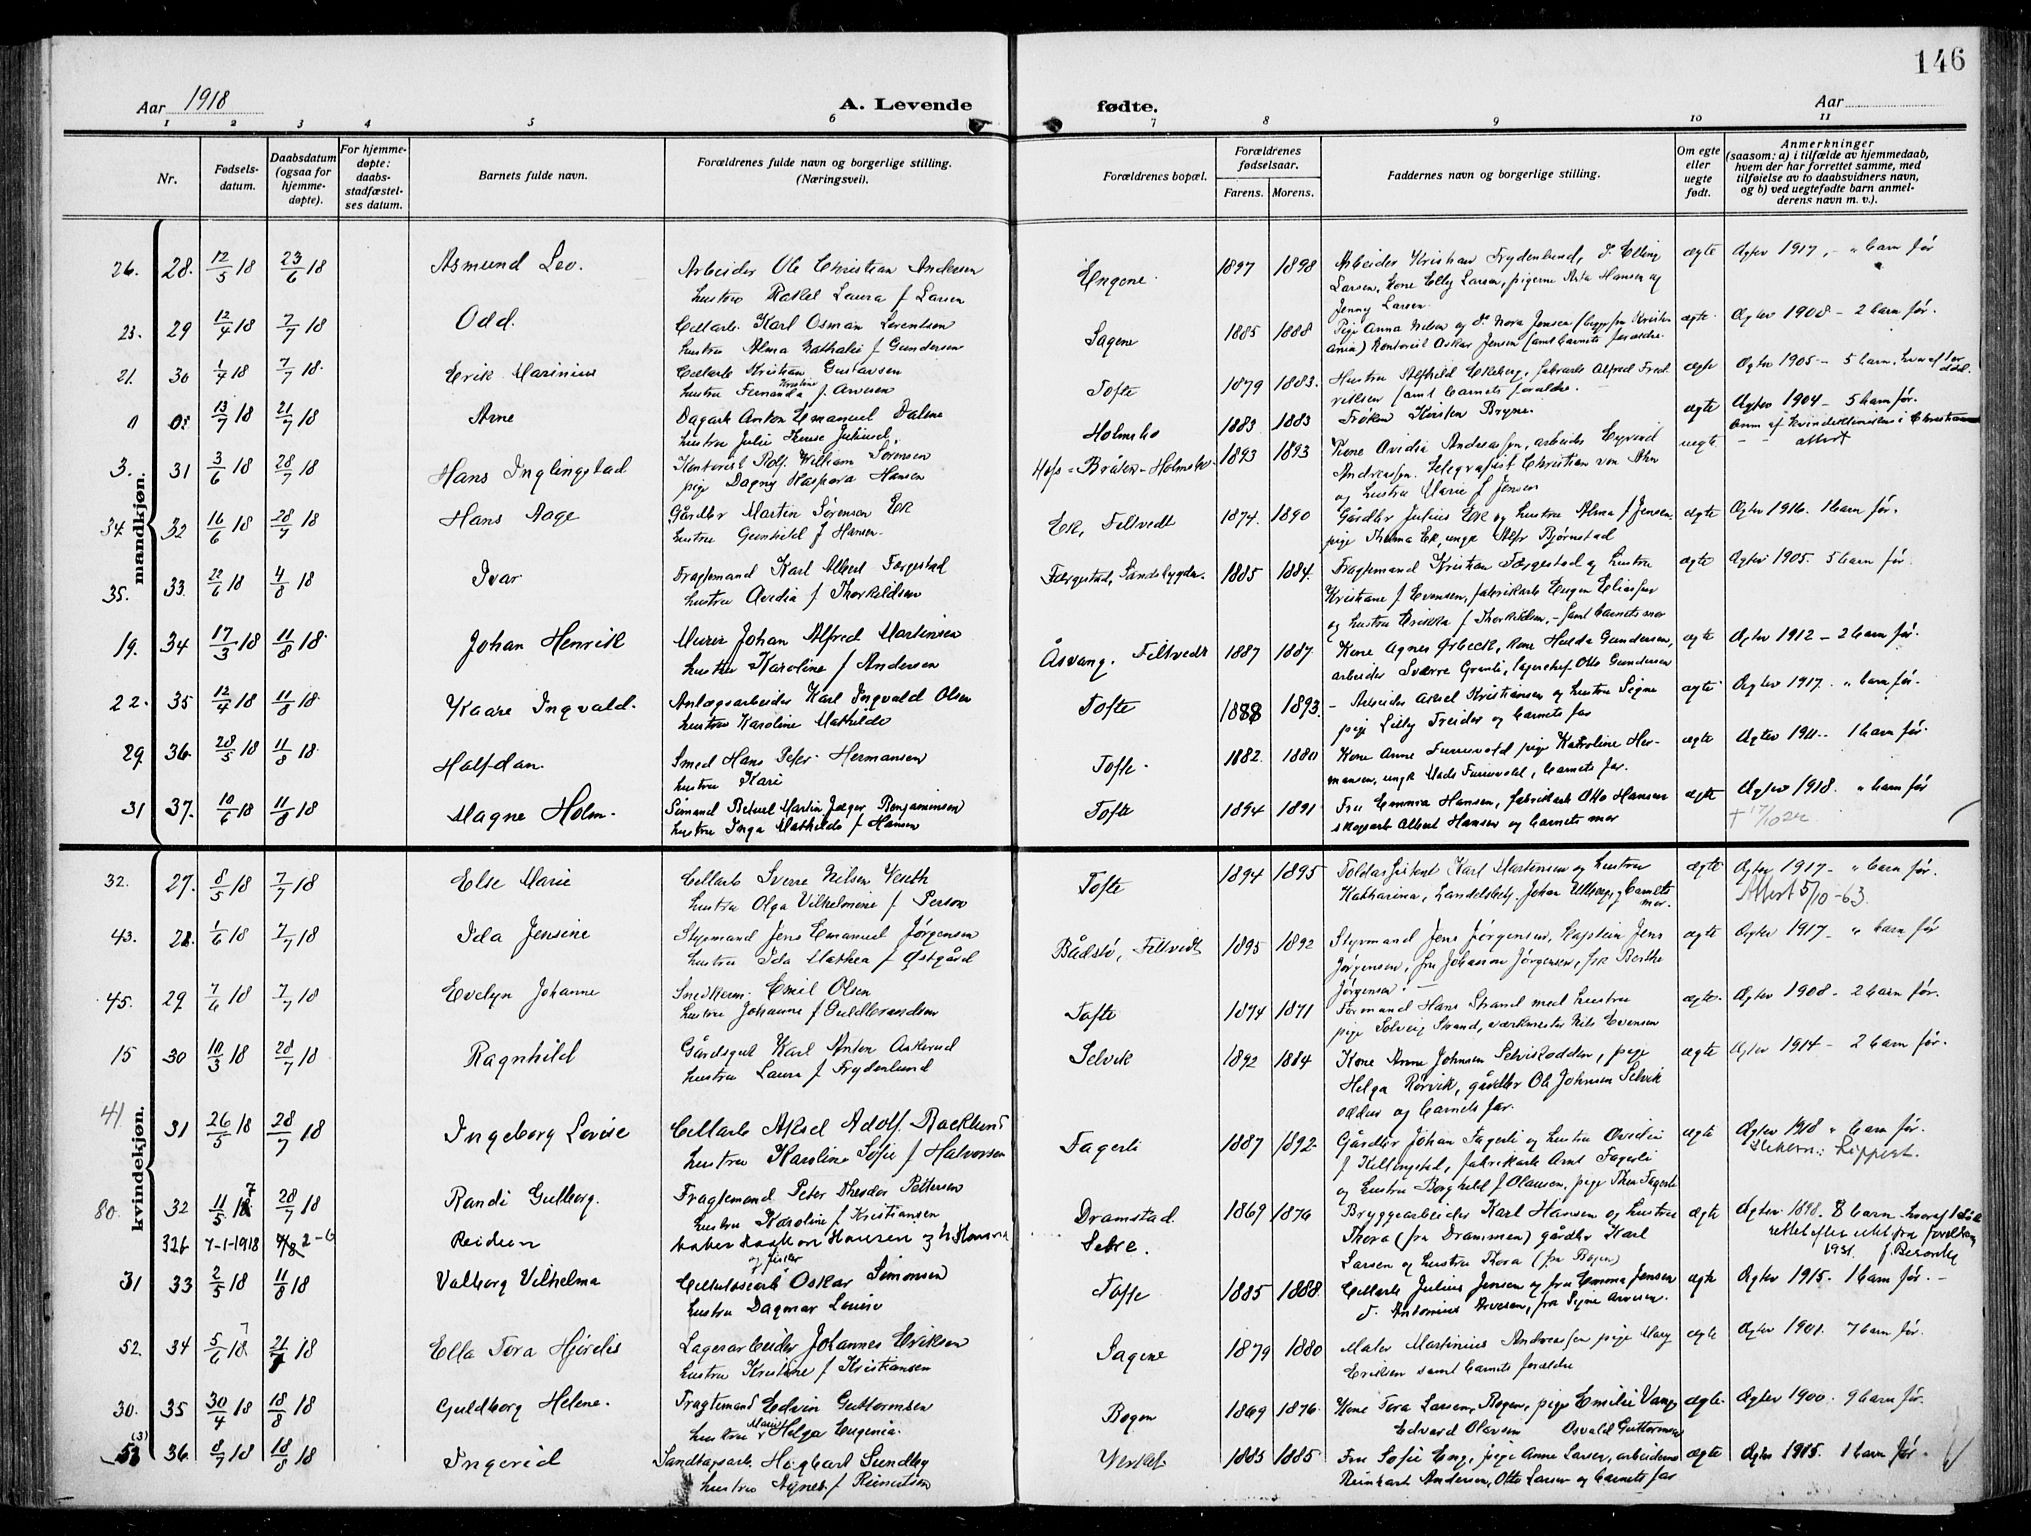 146
Aar 1918
A. Levende fødte.
Aar
1 2 3 4 5 6 7 8 9 10 11
Nr.
Fødsels-
datum.
Daabsdatum
(ogsaa for
hjemme-
døpte).
For hjemme-
døpte:
daabs-
stadfæstel-
ses datum.
Barnets fulde navn.
Forældrenes fulde navn og borgerlige stilling.
(Næringsvei).
Forældrenes bopæl.
Forældrenes
fødselsaar.
Farens. Morens.
Faddernes navn og borgerlige stilling.
Om egte
eller
uegte
født.
Anmerkninger
(saasom: a) i tilfælde av hjemmedaab,
hvem der har forrettet samme, med
tilføielse av to daabsvidners navn,
og b) ved uegtefødte barn anmel-
derens navn m. v.).
mandkjøn.
26. 28. 12/5 18 23/6 18 Asmund Leo. Arbeider Ole Christian Andersen
hustru Rakel Laura f Larsen
Engene 1897 1898 Arbeider Kristian Frydenlund, D. Elling
Larsen, kone Elly Larsen, pigerne Asta Hansen og
Jenny Larsen. ægte Agtev 1917, - " barn før
23. 29 12/4 18 7/7 18 Odd. Cellarb. Karl Osman Lorentsen
hustru Alma Nathalie f Gundersen
Sagene 1885 1888 Pige Anna Nilsen og D. Nora Jensen
Kontorist Oskar Jensen samt barnets forældre. ægte Agtev 1908 - 2 barn før.
21. 30 1/4 18 7/7 18. Erik Marinius Cellarb Kristian Gustavsen
hustru Fernanda Kristine f. Arvesen
Tofte 1879 1883. Hustru Alfhild Ekeberg, fabrarb Alfred Fred-
riksen samt barnets forældre. ægte Agtev 1905 - 5 barn, hvoraf 1 er
død.
13/7 18 21/7 18 Arne Dagarb Anton Emanuel Dalene
hustru Julie
Holmsbo 1883 1883 Frøken Kirsten Bryne. ægte Agtev 1904 - 5 barn før.
3. 31 3/6 18 28/7 18 Hans Inglingstad Kontorist Rolf William Sørensen
pige Dagny Kaspara Hansen
Holmsbo 1893 1893 Kone Ovidia Andreassen, arbeider Eyvind
Andreassen. Telegrafist Christian von Ahn
og hustru Marie f Jensen uegte attest
34 32 16/6 18 28/7 18 Hans Aage Gårdbr Martin Sørensen Ek
hustru Gunhild f Hansen.
Ek, Filtvedt 1874. 1890 Gårdbr Julius Ek og hustru Alma f Jensen,
pige Thelma Ek, ungk Alfr Bjørnstad ægte Agtev 1916. 1 barn før.
35. 33. 22/6 18 4/8 18 Ivar Fragtemand Karl Albert Færgestad
hustru Ovidia f Thorkildsen
Færgestad, Sandsbygda. 1885 1884. Fragtemand Kristian Færgestad og hustru
Kristiane f Evensen, fabrikarb Eugen Eliassen
og hustru f Thorkildsen, - samt barnets mor ægte Agtev 1905. 5 barn før.
19. 34 17/3 18 11/8 18. Johan Henrik Murer Johan Alfred Martinsen
hustru Karoline f Andersen
Åsvang. Filtvedt 1887 1887. Kone Agnes Ørbeck, kone Hulda Gundersen,
arbeider Sværre Granli, lagerchef Otto Gundersen ægte Agtev 1912 - 2 barn før.
22. 35 12/4 18 11/8 18. Kaare Ingvald. Anlægsarbeider Karl Ingvald Olsen
hustru Karoline Mathilde
Tofte 1888 1893. - Arbeider Aksel Kristiansen og hustru Signe
pige Lilly Treider og barnets far ægte Agtev 1917. " barn før.
29. 36. 28/5 18 11/8 18. Halfdan. Smed Hans Peter Hermansen
hustru Kari
Tofte. 1882. 1880 Kone Anne Furuvold pige Kathroline Her-
mansen, ungk Mads Furuvold, barnets far. ægte Agtev 1911. 1 barn før.
31 37. 10/6 18 11/8 18 Magne Holm. Sømand Betuel Martin Jæger Benjaminsen
hustru Inga Mathilde f Hansen
Tofte 1894 1891 Fru Emma Hansen, fabrikarb Otto Hansen
skogsarb Albert Hansen og barnets mor ægte Agtev 1918. " barn før
† 17/10 24
kvindekjøn.
32. 27. 8/5 18 7/7 18 Else Marie Cellarb Sverre Nilsen Veseth
hustru Olga Vilhelmine f Person
Tofte 1894 1895 Toldassistent Karl Martinsen og hustru
Katharina, Johan og barnets
mor. ægte Agtev 1917. " barn før.
Attest 5/10-63.
43. 28. 1/6 18 7/7 18 Ida Jensine Styrmand Jens Emanuel Jørgensen
hustru Ida Mathea f Østgård
Bådstø, Filtvedt 1895 1892 Styrmand Jens Jørgensen, kaptein Jens
Jørgensen, fru Johanna Jørgensen, frk Berthe
Jørgensen. ægte Agtev 1917. " barn før
45. 29. 7/6 18 7/7 18 Evelyn Johanne Snedkerm. Emil Olsen
hustru Johanne f Guldbrandsen
Tofte 1874 1871 Formand Hans Strand med hustru
pige Solveig Strand, værkmester Nils Evensen ægte. Agtev 1908. 2 barn før.
15 30 10/3 18 28/7 18 Ragnhild Gårdsgut Karl Anton Askerud
hustru Laura f Frydenlund
Selvik 1892 1884 Kone Anna Johnsen Selviksodden, pige
Helga Rørvik, gårdbr Ole Johnsen Selvik
odden og barnets far. ægte Agtev 1914 - 2 barn før.
41 31 26/5 18 28/7 18 Ingeborg Lovise Cellarb Aksel Adolf Racklund
hustru Karoline Sofie f Halvorsen
Fagerli 1887 1892 Gårdbr Johan Fagerli og hustru Ovidia
f Killingstad, fabrikarb Arnt Fagerli
og hustru Borghild f Olausen, pige Thea Fagerli ægte Agtev 1918 " barn før.
Lippert.
80. 32 11/5 17 28/7 18 Randi Gulborg. Fragtemand Peter Theodor Pettersen
hustru Karoline f Kristiansen
Dramstad. 1869 1876 Bryggearbeider Karl Hansen og hustru
Thora (fra Drammen) gårdbr Karl
Larsen og hustru Thora (fra Bogen) ægte Agtev 1898. 8 barn - hvoraf 1 død
1931.
32b 7-1-1918 Reidun Baker Haakon Hansen
Sætre.
31 33 2/5 18 11/8 18 Valborg Vilhelma Celluloséarb og fisker Oskar Simonsen
hustru Dagmar Lovise
Tofte 1885 1888. Cellarb Julius Jensen og fru Emma Jensen
D. Antonius Arvesen, fru Signe Arvesen. ægte Agtev 1915. 1 barn før. -
52. 34 5/6 18 21/7 18 Ella Tora Hjørdis Lagerarbeider Johannes Eriksen
hustru Kristine f Kristiansen
Sagene 1879 1880 Maler Martinius Andreassen pige Mary
Eriksen samt barnets forældre ægte Agtev 1901. 7 barn før.
30. 35 30/4 18 18/8 18 Guldborg Helene. Fragtemand Edvin Guttormsen
hustru Marie Helga Eugenia.
Bogen 1869 1876. Kone Tora Larsen, Bogen, pige Emilie Vang,
Edvard Olavsen Osvald Guttormsen ægte. Agtev 1900. 9 barn før.
53 (3) 36. 8/7 18 18/8 18 Ingerid Sandtagsarb Hagbart Sundby
hustru Agnes f Reinertsen
Verket 1885 1885 Fru Sofie Eng, pige Anne Larsen, arbeiderne
Reinhart Andersen, Otto Larsen og barnets far ægte Agtev 1915. 1 barn før.